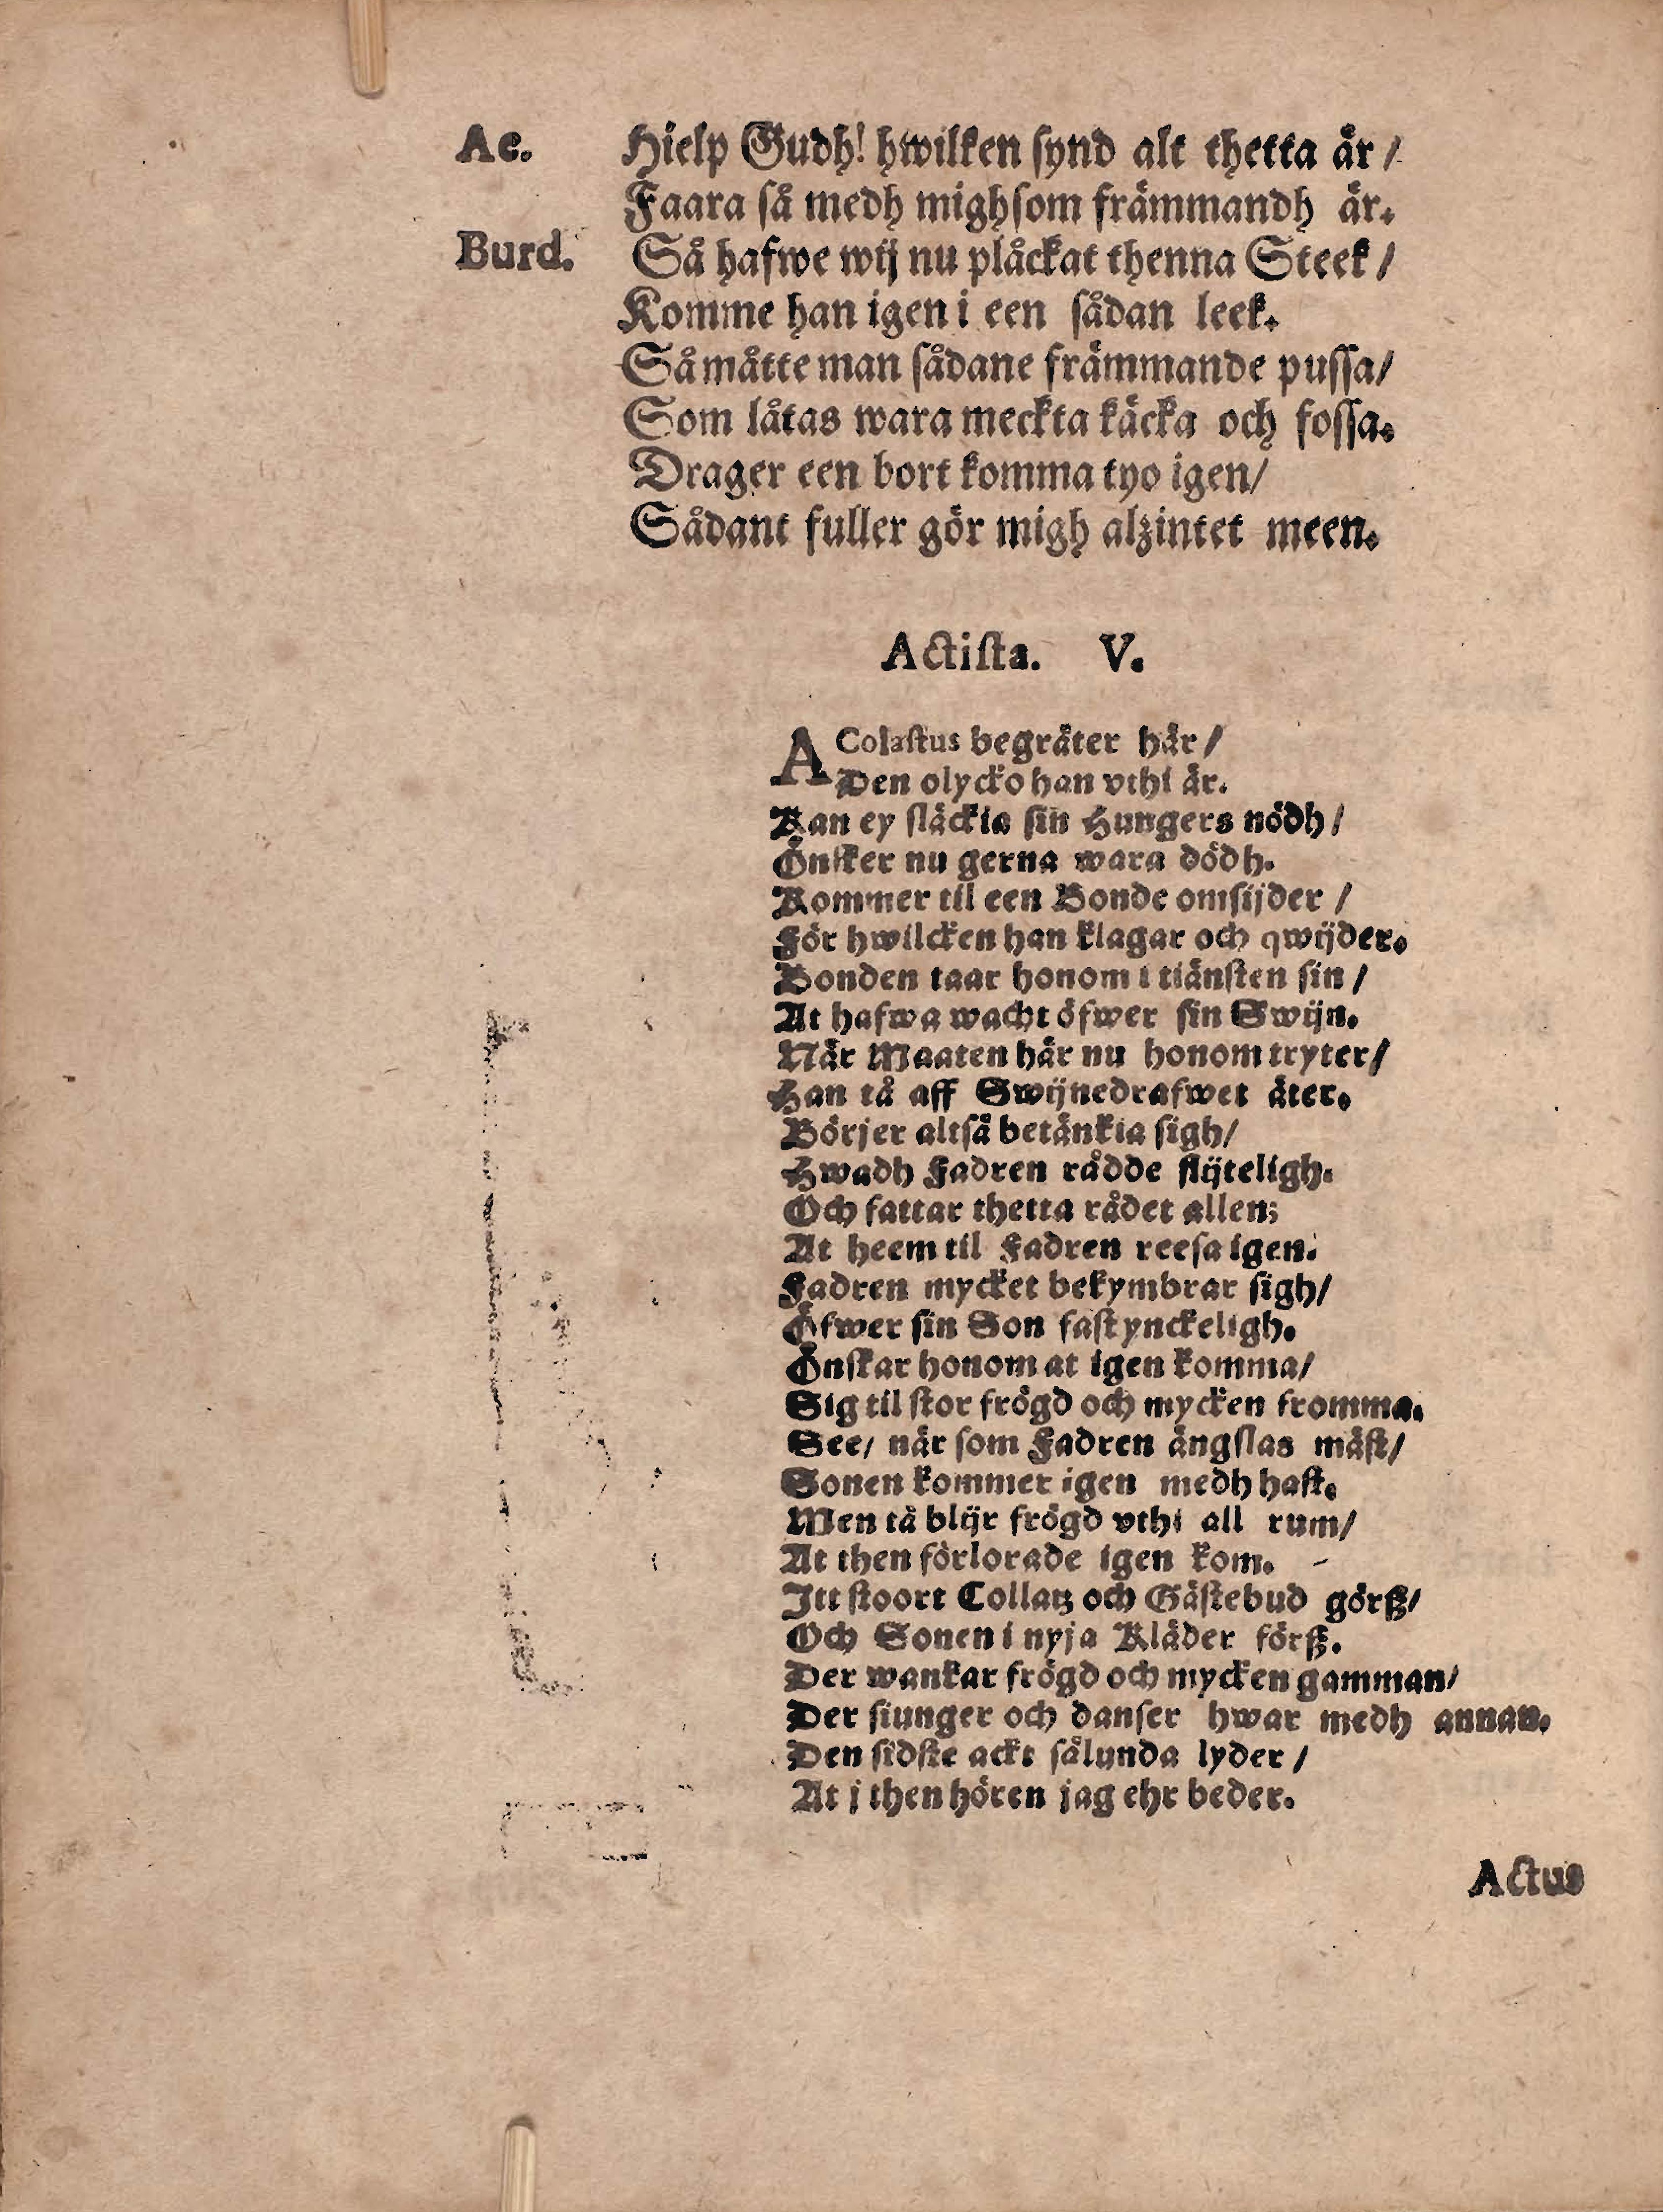 Ac. Hielp Gudh! hwilken synd alt thetta är /
Faara så medh mighsom främmandh är.
Burd. Så hafwe wij nu plåckat thenna Steek /
Komme han igen i een sådan leek.
Såmåtte man sådane främmande pussa/
Som låtas wara meckta käcka och fossa.
Drager een bort komma tyo igen/
Sådant fuller gör migh alzintet meen.
Actista. V.
AColastus begräter här /
Den olycko han vthi är.
Kan ey släckia sin Hungers nödh /
Önsker nu gerna wara dödh.
Kommer til een Bonde omsijder /
För hwilcken han klagar och qwijder.
Bonden taar honom i tiänsten sin /
At hafwa wacht öfwer sin Swijn.
När Maaten här nu honom tryter/
Han tå aff Swijnedrafwet äter.
Börjer altså betänkia sigh/
Hwadh Fadren rådde flijteligh.
Och fattar thetta rådet allen;
At heem til Fadren reesa igen.
Fadren mycket bekymbrar sigh/
Öfwer sin Son fast ynckeligh.
Önskar honom at igen komma/
Sig til stor frögd och mycken fromma.
See/ när som Fadren ängslas mäst/
Sonen kommer igen medh hast.
Men tå blijr frögd vthi all rum/
At then förlorade igen kom.
Itt stoort Collatz och Gästebud görß/
Och Sonen i nyja Kläder förß.
Der wankar frögd och mycken gamman/
Der siunger och danser hwar medh annan.
Den sidste ackt sålunda lyder /
At j then hören jag ehr beder.
Actus